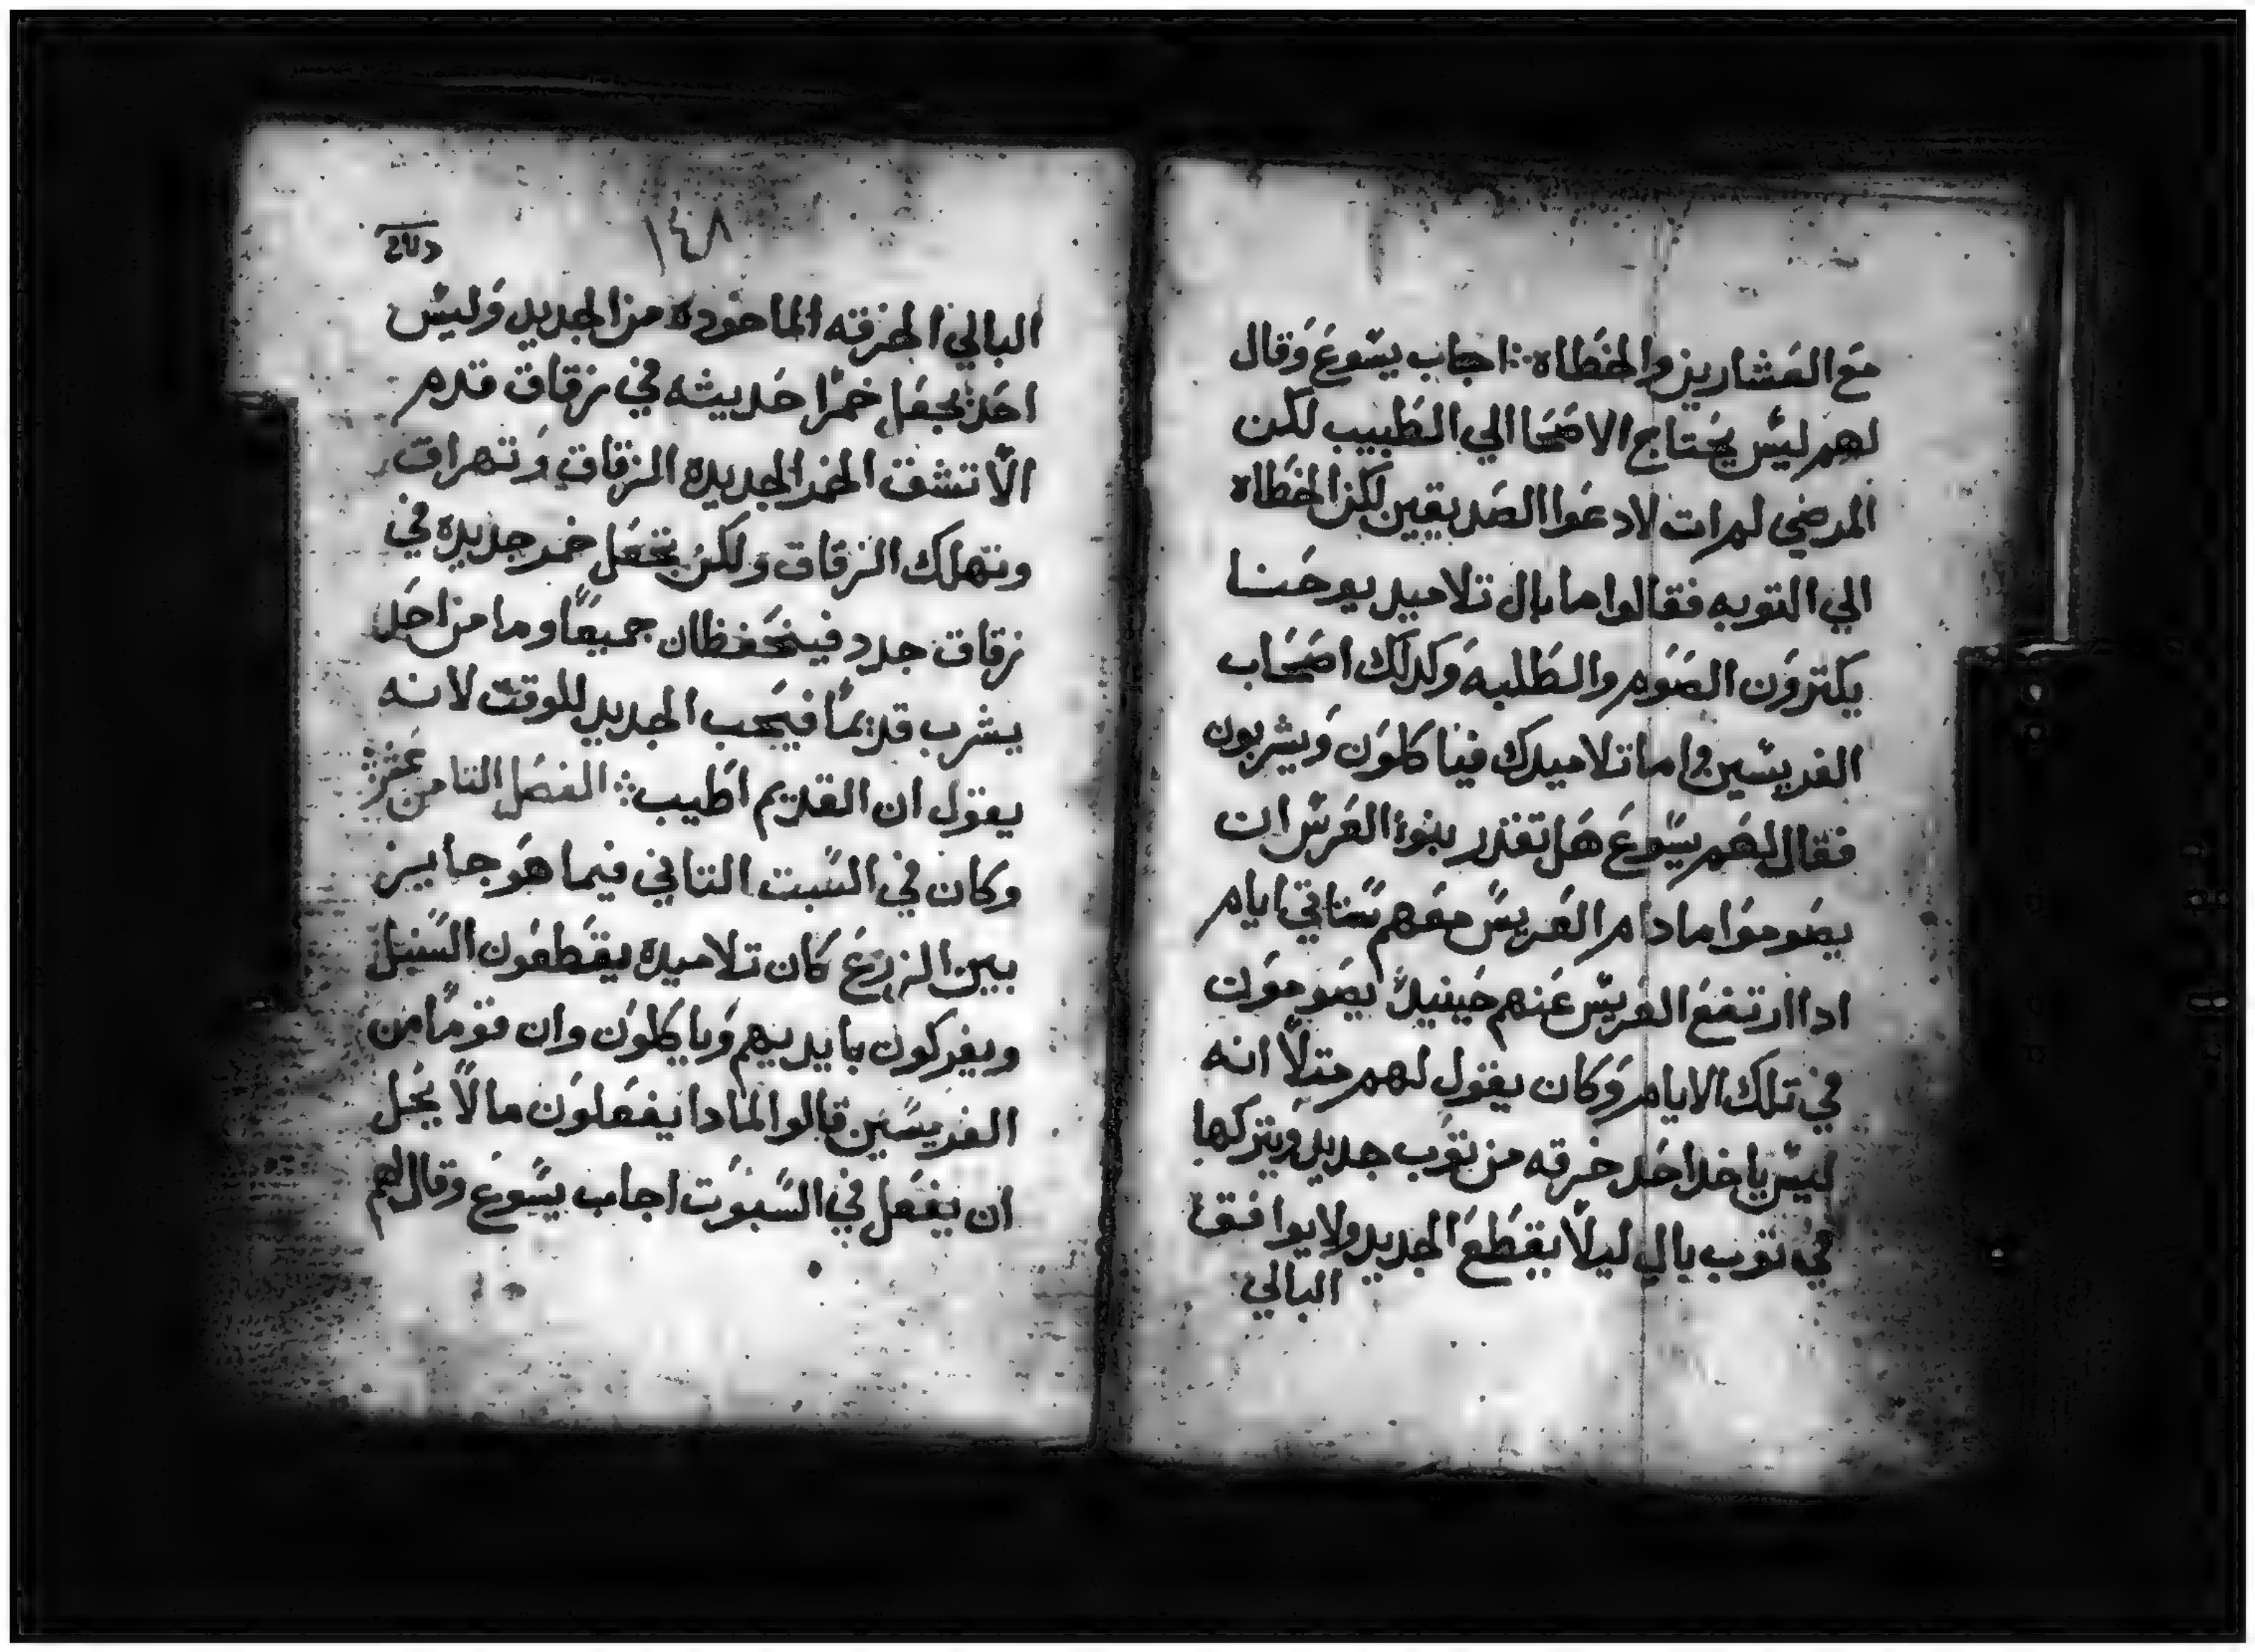 مع العشارين والخطاه ⁘ اجاب يسوع وقال
لهم ليس يحتاج الاصحا الي الطبيب لكن
المرضي لم ات لادعوا الصديقين لكن الخطاه
الي التوبه فقالوا ما بال تلاميد يوحنا
يكترون الصوم والطلبه وكدلك اصحاب
الفريسين واما تلاميدك فياكلون ويشربون
فقال لهم يسوع هل تقدر بنوا العرس ان
يصوموا مادام العريس معهم ستاتي ايام
ادا ارتفع العريس عنهم حينيد يصومون
في تلك الايام وكان يقول لهم متلا انه
ليس ياخد احد خرقه من توب جديد ويتركها
في توب بال ليلا يقطع الجديد ولا يوافق
البالي
١٤٨
البالي الخرقه الماخوده من الجديد وليس
احد يجعل خمرا حديثه في زقاق قدم
الا تشق الخمر الجديده الزقاق وتهراق
وتهلك الزقاق ولكن تجعل خمر جديده في
زقاق جدد فينحفظان جميعا وما من احد
يشرب قديما فيحب الجديد للوقت لانه
يقول ان القديم اطيب ⁘ الفصل التامن عشر
وكان في السبت التاني فيما هو جايز
بين الزرع كان تلاميده يقطفون السنبل
ويفركون بايديهم وياكلون وان قوما من
الفريسين قالوا لمادا يفعلون ما لا يحل
ان يفعل في السبوت اجاب يسوع وقال لهم